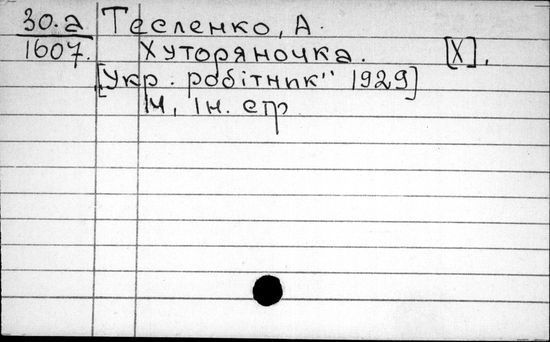 30.а Тесленко, А.
1607. Хуторяночка. [Х].
[Укр. робітник" 1929]
ін. стр.